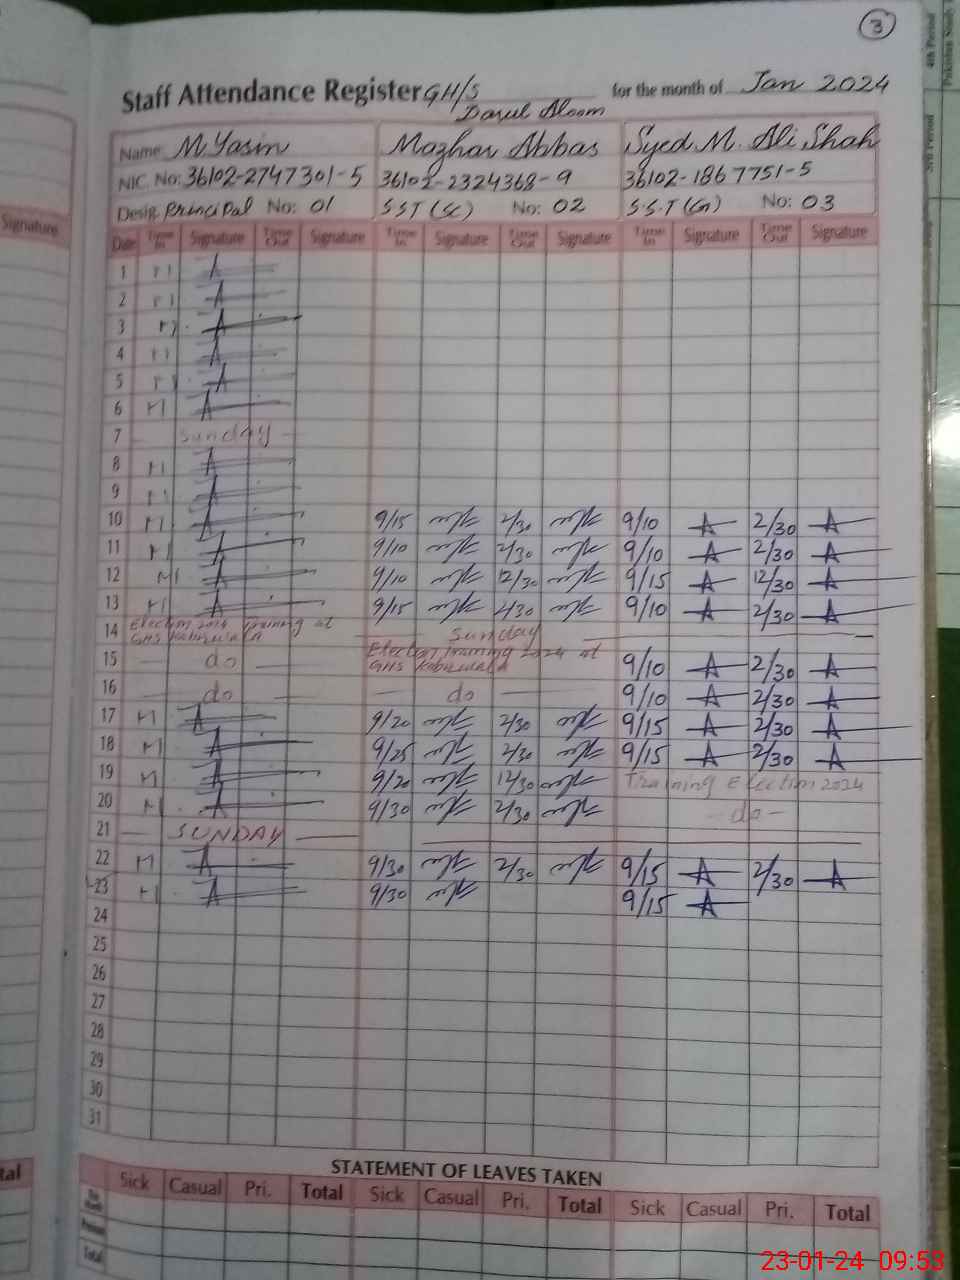 3
4th Period
Pakistan Study
3rd Period
Staff Attendance Register GH/S for the month of Jan 2024
Darul Aloom
Name: M Yasin Mazhar Abbas Syed M. Ali Shah
NIC. No: 36102-2747301-5 36102-2324368-9 36102-1867751-5
Desig. Principal No: 01 SST (SC) No: 02 S.S.T (Gn) No: 03
Signature
Date Time In Signature Time Out Signature Time In Signature Time Out Signature Time In Signature Time Out Signature
1
2
3
4
5
6
7 Sunday
8
9
10 9/15 2/30 9/10 2/30
11 9/10 2/30 9/10 2/30
12 9/10 12/30 9/15 12/30
13 9/15 2/30 9/10 2/30
14 Election 2024 Training at Sunday
GHS Kabirwala
15 do Election Training 2024 at 9/10 2/30
GHS Kabirwala
16 do do 9/10 2/30
17 9/20 2/30 9/15 2/30
18 9/25 2/30 9/15 2/30
19 9/20 12/30 Training Election 2024
20 9/30 2/30 -do-
21 SUNDAY
22 9/30 2/30 9/15 2/30
23 9/30 9/15
24
25
26
27
28
29
30
31
STATEMENT OF LEAVES TAKEN
Sick Casual Pri. Total Sick Casual Pri. Total Sick Casual Pri. Total
Total
23-01-24 09:53